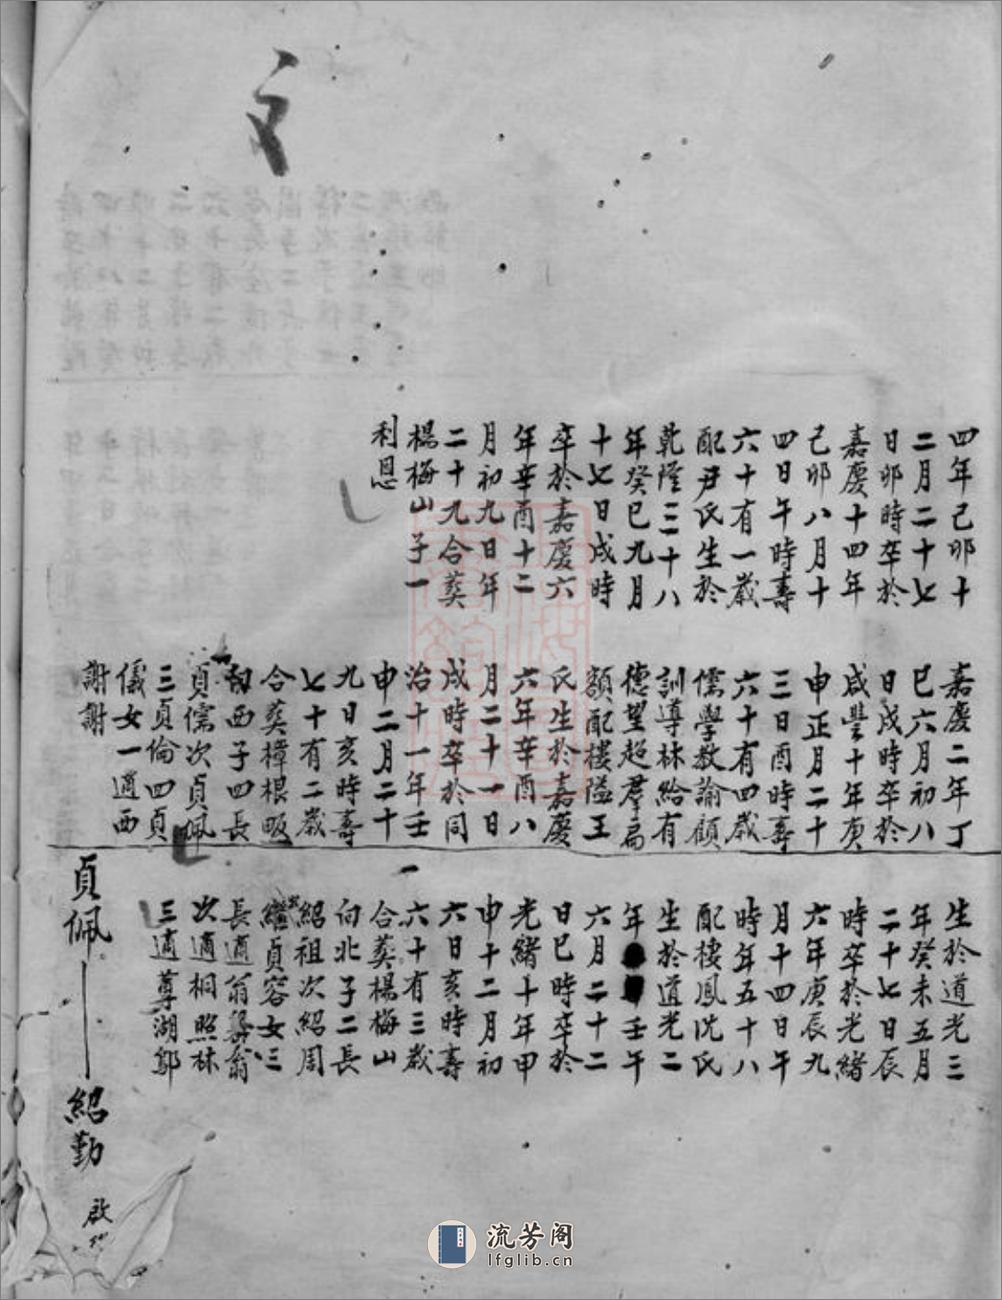 四年己卯十
二月二十七
日卯時卒於
嘉慶十四年
己卯八月十
四日午時壽
六十有一歲
配尹氏生於
乾隆三十八
年癸巳九月
十七日戌時
卒於嘉慶六
年辛酉十二
月初九日年
二十九合葬
楊梅山子一
利恩
嘉慶二年丁
巳六月初八
日戌時卒於
咸豐十年庚
申正月二十
三日酉時壽
六十有四歲
儒學教諭顧
訓導林給有
德望超羣扁
額配樓隘王
氏生於嘉慶
六年辛酉八
月二十一日
戌時卒於同
治十一年壬
申二月二十
九日亥時壽
七十有二歲
合葬樟根畈
向西子四長
貞儒次貞佩
三貞倫四貞
儀女一適西
謝謝
生於道光三
年癸未五月
二十七日辰
時卒於光緒
六年庚辰九
月十四日午
時年五十八
配樓鳳沈氏
生於道光二
年壬午
六月二十二
日巳時卒於
光緒十年甲
申十二月初
六日亥時壽
六十有三歲
合葬楊梅山
向北子二長
紹祖次紹周
出繼貞容女三
長適翁翁
次適桐照林
三適蓴湖鄔
貞佩 紹勤 啟
流芳阁
lfglib.cn